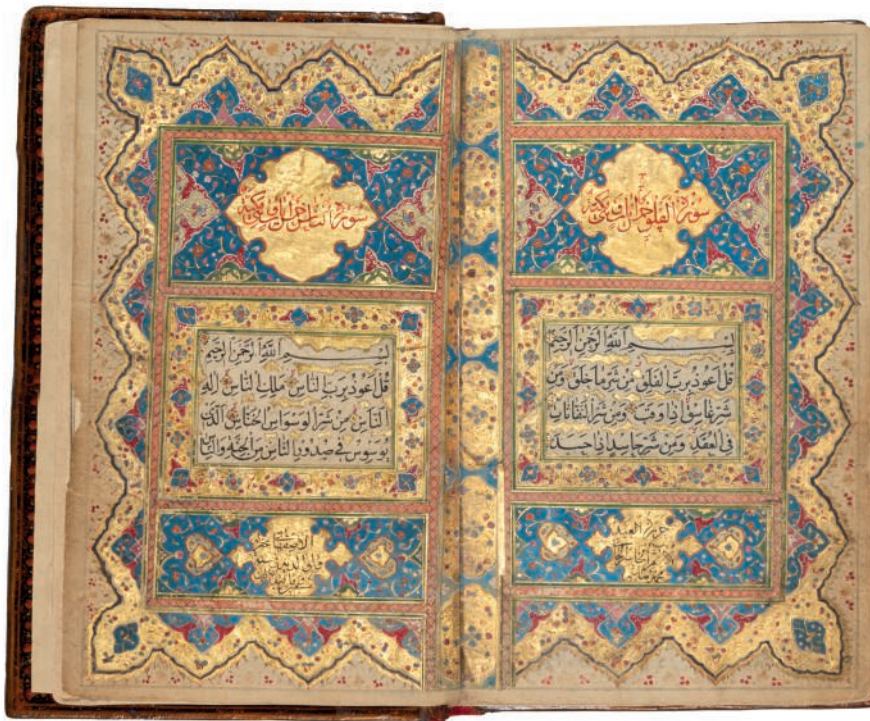 سورة الفلق خمس آيات مكية
بسم الله الرحمن الرحيم
قل اعوذ برب الفلق من شر ما خلق ومن
شر غاسق اذا وقب ومن شر النفاثات
في العقد ومن شر حاسد اذا حسد
سورة الناس
بسم الله الرحمن الرحيم
قل اعوذ برب الناس ملك الناس اله
الناس من شر الوسواس الخناس الذى
يوسوس في صدور الناس من الجنة والناس